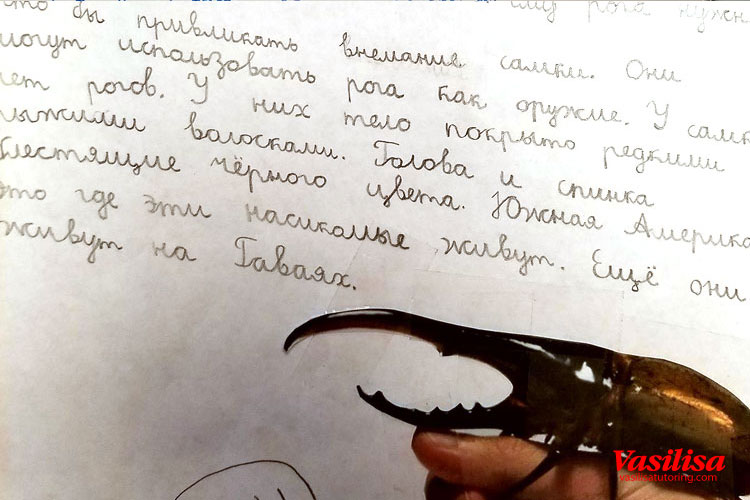 что бы привликать внемание самки. Они
могут использовать рога как оружие. У самк
нет рогов. У них тело покрыто редкими
рыжими волосками. Голова и спинка
блестящие чёрного цвета. Южная Америка
это где эти насикомые живут. Ещё они
живут на Гаваях.
Vasilisa
vasilisatutoring.com